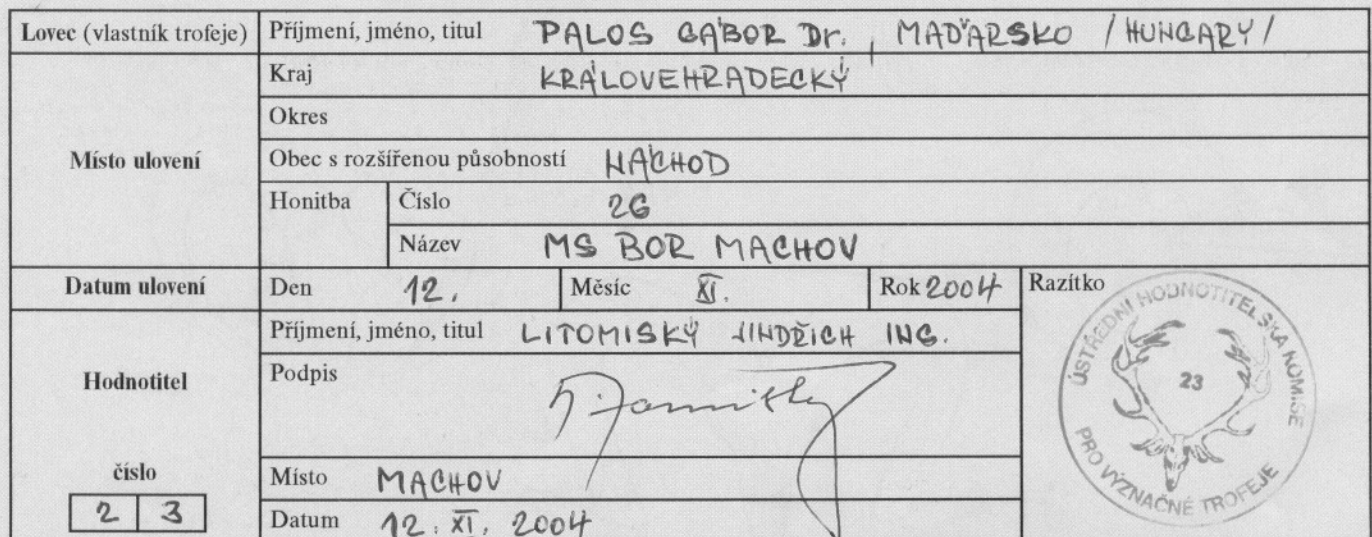 Lovec (vlastník trofeje) Příjmení, jméno, titul PALOS GÁBOR Dr., MAĎARSKO /HUNGARY/
Kraj KRÁLOVEHRADECKÝ
Okres
Místo ulovení
Obec s rozšířenou působností NÁCHOD
Honitba Číslo 26
Název MS BOR MACHOV
Datum ulovení Den 12. Měsíc XI. Rok 2004 Razítko
Příjmení, jméno, titul LITOMISKÝ JINDŘICH ING.
Hodnotitel
Podpis
číslo
2 3
Místo MACHOV
Datum 12. XI. 2004
ÚSTŘEDNÍ HODNOTITELSKÁ KOMISE
23
PRO VÝZNAČNÉ TROFEJE